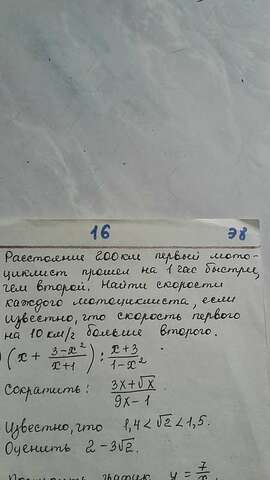 16 ЭВ
Расстояние 200 км первый мото-
циклист прошел на 1 час быстрее,
чем второй. Найти скорости
каждого мотоциклиста, если
известно, что скорость первого
на 10 км/ч больше второго.
) (x + \frac{3-x²}{x+1}) : \frac{x+3}{1-x²}
Сократить: \frac{3x+√x}{9x-1}
Известно, что 1,4<√2<1,5.
Оценить 2-3√2.
график y = \frac{7}{x}